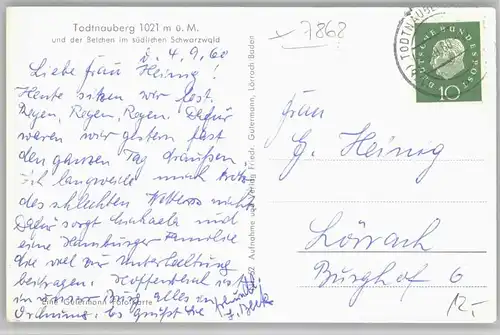 Todtnauberg 1021 m ü. M.
und der Belchen im südlichen Schwarzwald
d. 4.9.60
Liebe Frau Heinig!
Heute sitzen wir fest.
Regen, Regen, Regen. Dafür
waren wir gestern fast
den ganzen Tag draußen
Ich langweile mich trotz
des schlechten Wetters nicht
Dafür sorgt Michaela und
eine Hamburger Familie
die viel zur Unterhaltung
beitragen. Hoffentlich ist
in Ihrem Haus alles in
Ordnung. Es grüßt Sie
Aufnahme und Verlag Friedr. Gutermann, Lörrach-Baden
7862
TODTNAUBERG
DEUTSCHE BUNDESPOST
10
Frau
G. Heinig
Lörrach
Burghof 6
12.-